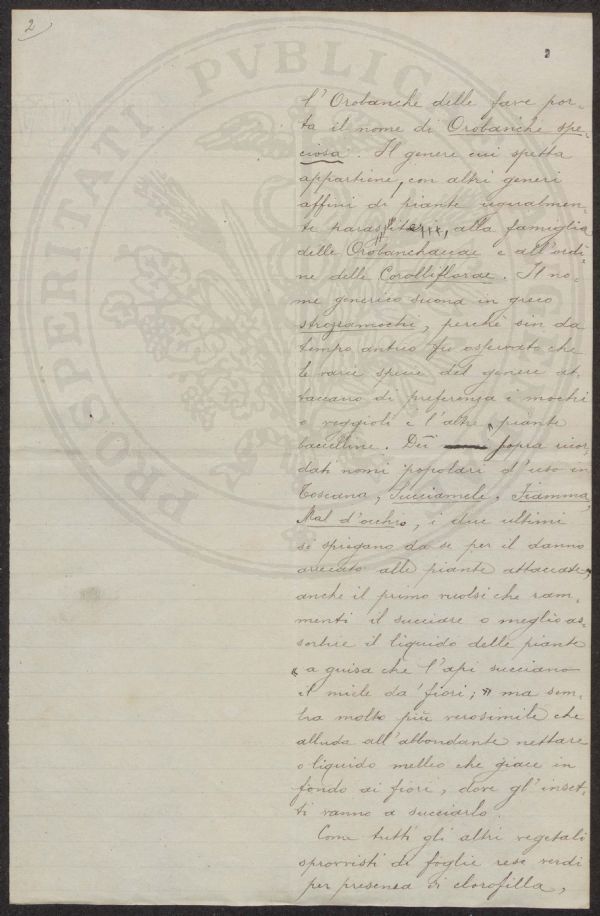 2
PROSPERITATI PVBLIC
l'Orobanche delle fave por-
ta il nome di Orobanche spe-
ciosa. Il genere cui spetta
appartiene, con altri generi
affini di piante ugualmen-
te parassite, alla famiglia
delle Orobanchaceae e all'ordi-
ne delle Corolliflorae. Il no-
me generico suona in greco
strozzamochi, perchè sin da
tempo antico fu osservato che
le varie specie del genere at-
taccano di preferenza i mochi
o veggioli e l'altre piante
baccelline. Dei sopra ricor-
dati nomi popolari d'uso in
Toscana, Succiamele, Fiamma,
Mal d'occhio, i due ultimi
si spiegano da se per il danno
arrecato alle piante attaccate,
anche il primo vuolsi che ram-
menti il succiare o meglio as-
sorbire il liquido delle piante
« a guisa che l'api succiano
il miele da' fiori; » ma sem-
bra molto più verosimile che
alluda all'abbondante nettare
o liquido melleo che giace in
fondo ai fiori, dove gl'inset-
ti vanno a succiarlo.
Come tutti gli altri vegetali
sprovvisti di foglie rese verdi
per presenza di clorofilla,